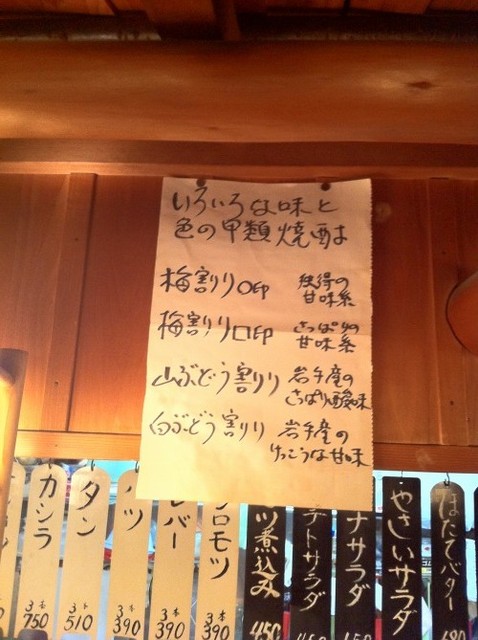 いろいろな味と
色の甲類焼酎は
梅割り〇印 独得の
甘味系
梅割り口印 さっぱりの
甘味系
山ぶどう割り 岩手産の
さっぱり酸味
白ぶどう割り 岩手産の
けっこうな甘味
カシラ
3本
750
タン
3本
510
ツ
3本
390
レバー
3本
390
シロモツ
3本
390
ツ煮込み
450
テトサラダ
450
ナサラダ
やさいサラダ
ほたてバター